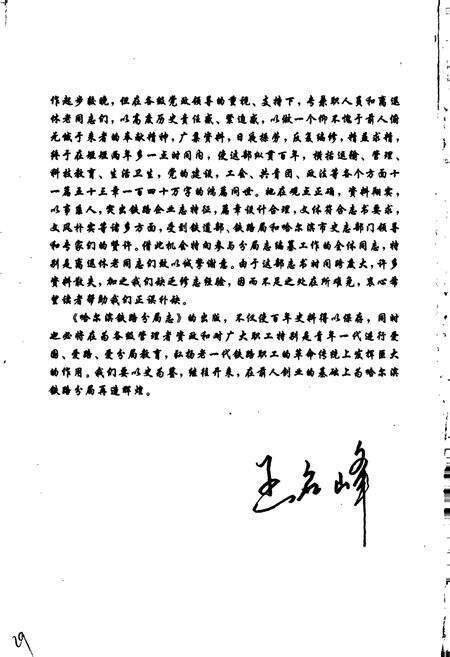 作起步较晚，但在各级党政领导的重视、支持下，专兼职人员和离退
休老同志们，以高度历史责任感、紧迫感，以做一个仰不愧于前人俯
无诚于来者的奉献精神，广集资料，日夜操劳，反复编修，精益求精，
终于在短短两年多一点时间内，使这部纵贯百年，横括运输、管理、
科技教育、生活卫生，党的建设，工会、共青团、政法等各个方面十
一篇五十三章一百四十万字的鸿篇问世。她在观点正确，资料翔实，
以事系人，突出铁路企业志特征，篇章设计合理，文体符合志书要求，
文风朴实等诸多方面，受到铁道部、铁路局和哈尔滨市史志部门领导
和专家们的赞许。借此机会特向参与分局志编纂工作的全体同志，特
别是离退休老同志们致以诚挚谢意。由于这部志书时间跨度大，许多
资料散失，加之我们缺乏修志经验，因而不足之处在所难免，衷心希
望读者帮助我们正误补缺。
《哈尔滨铁路分局志》的出版，不仅使百年史料得以保存，同时
也必将在为各级管理者资政和对广大职工特别是青年一代进行爱
国、爱路、爱分局教育，弘扬老一代铁路职工的革命传统上发挥巨大
的作用。我们要以史为鉴，继往开来，在前人创业的基础上为哈尔滨
铁路分局再造辉煌。
29